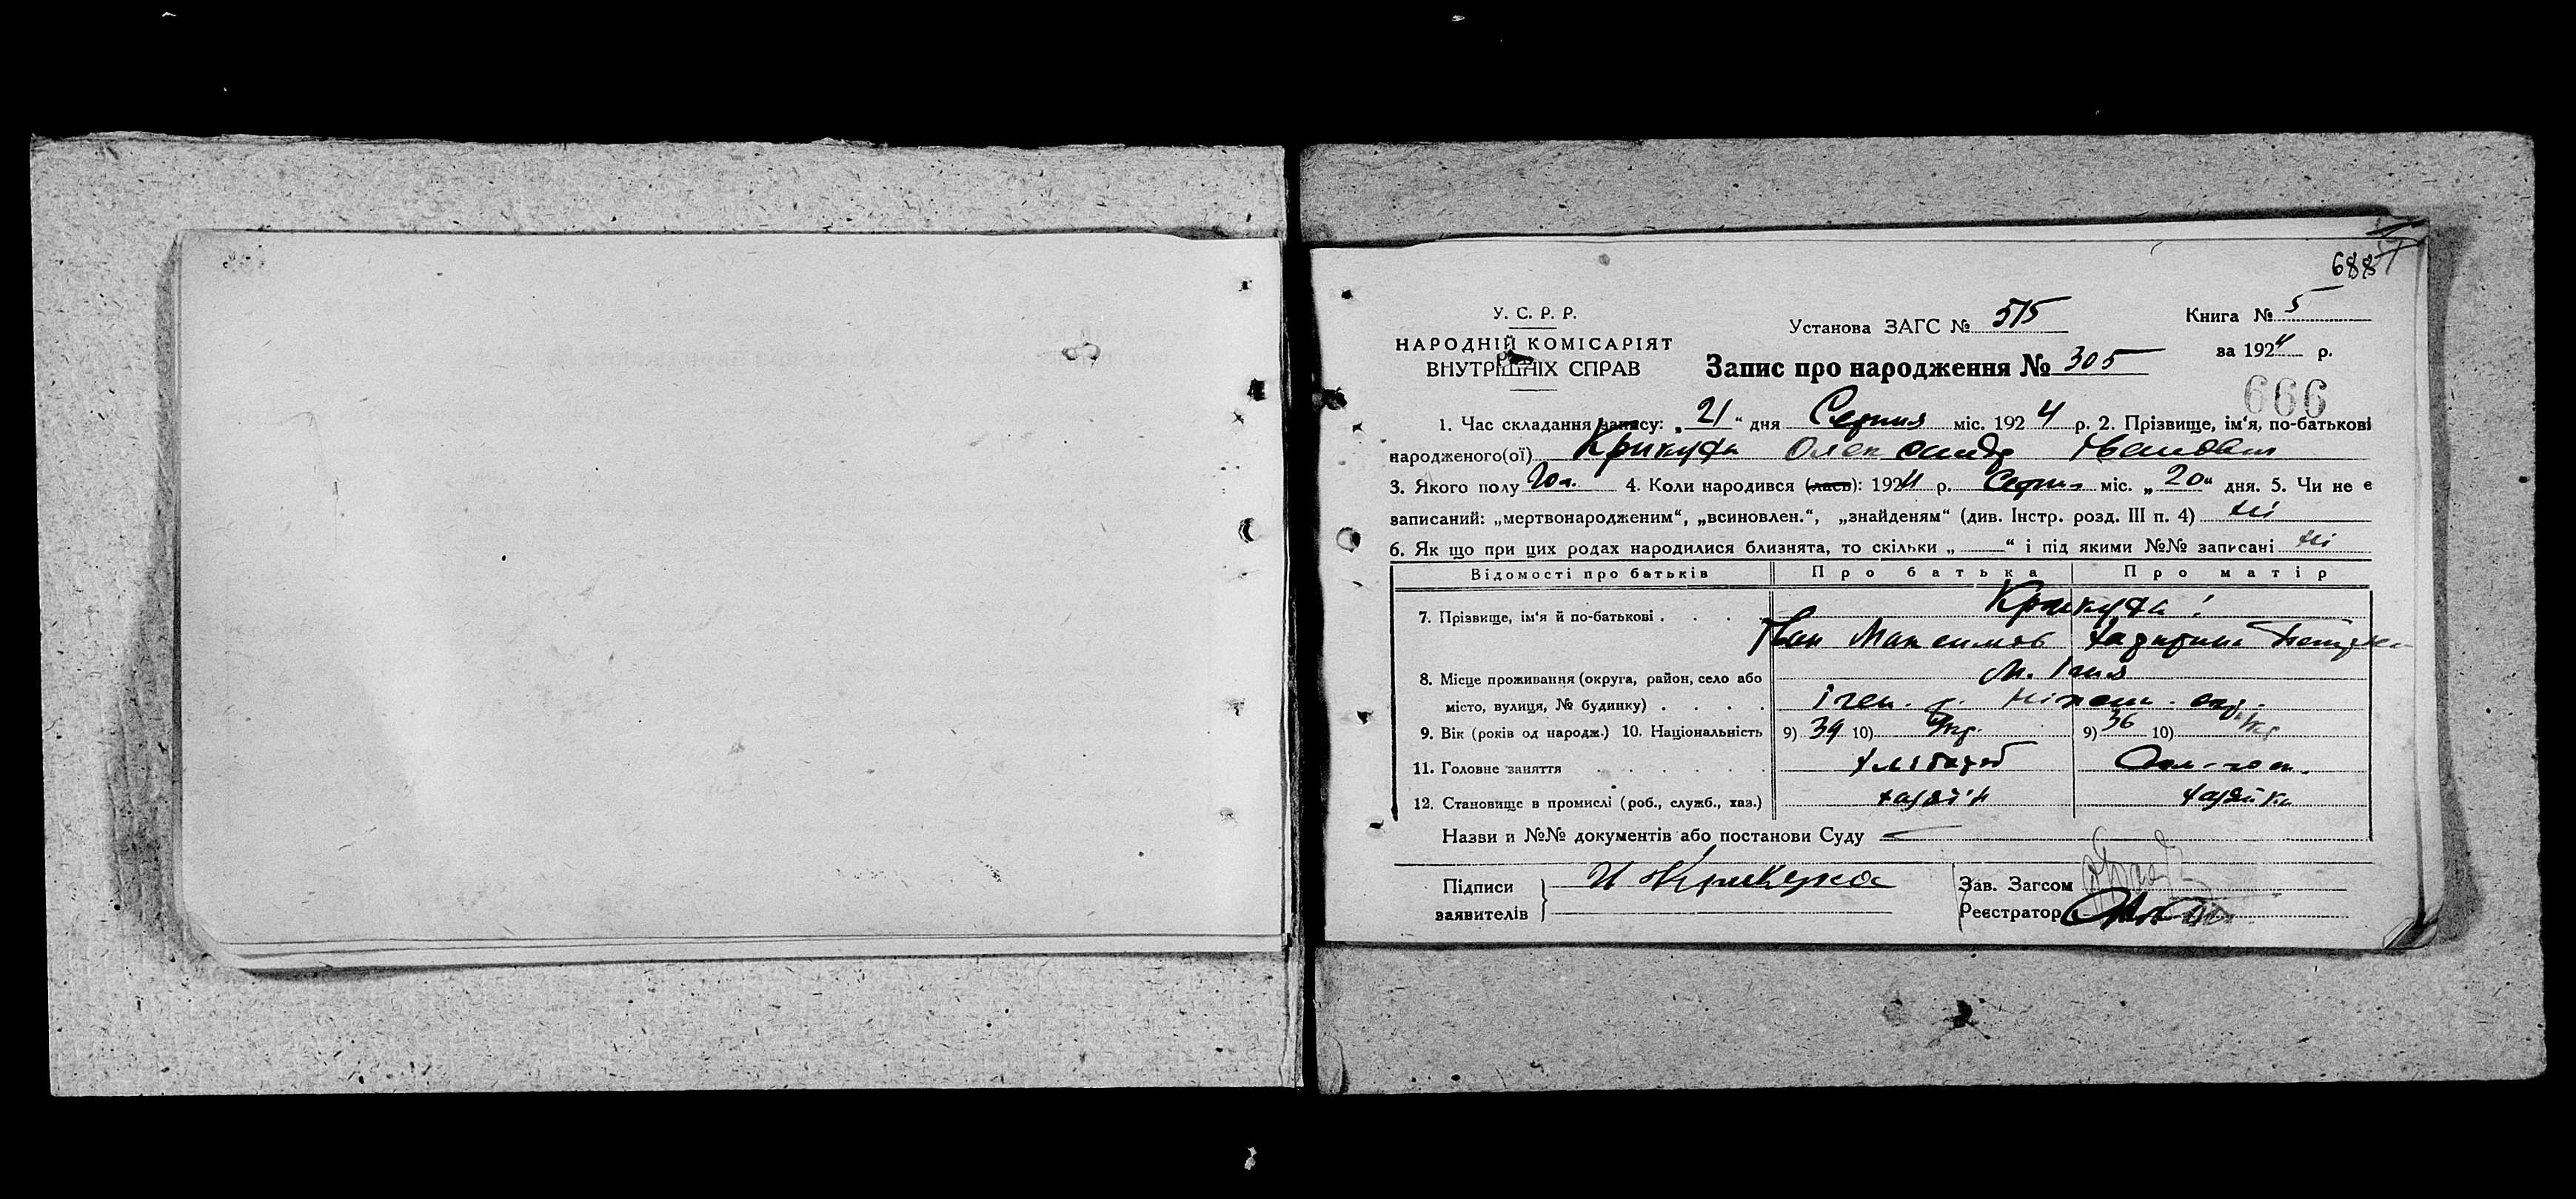 688
У. С. Р. Р.
НАРОДНІЙ КОМІСАРІЯТ
ВНУТРІШНІХ СПРАВ
Установа ЗАГС № 515
Книга № 5
за 1924 р.
Запис про народження № 305
666
1. Час складання запису: „21“ дня Серпня міс. 1924 р. 2. Прізвище, ім‘я, по-батькові
народженого(ої) Олександр Иванович
3. Якого полу Чол. 4. Коли народився (лась): 1924 р. Серпня міс. „20“ дня. 5. Чи не є
записаний: „мертвонародженим“, „всиновлен.“, „знайденям“ (див. Інстр. розд. III п. 4) Ні
6. Як що при цих родах народилися близнята, то скільки „ “ і під якими №№ записані Ні
Відомості про батьків Про батька Про матір
7. Прізвище, ім‘я й по-батькові
Іван Максимов
8. Місце проживання (округа, район, село або
М. Ічня
місто, вулиця, № будинку) Ічен. р. Ніжен. окр.
9. Вік (років од народж.) 10. Національність 9) 39 10) Укр. 9) 36 10) Укр
11. Головне заняття Хлібороб
12. Становище в промислі (роб., служб., хаз.) хазяїн хазяйка
Назви и №№ документів або постанови Суду
Підписи
заявителів
Зав. Загсом
Реєстратор